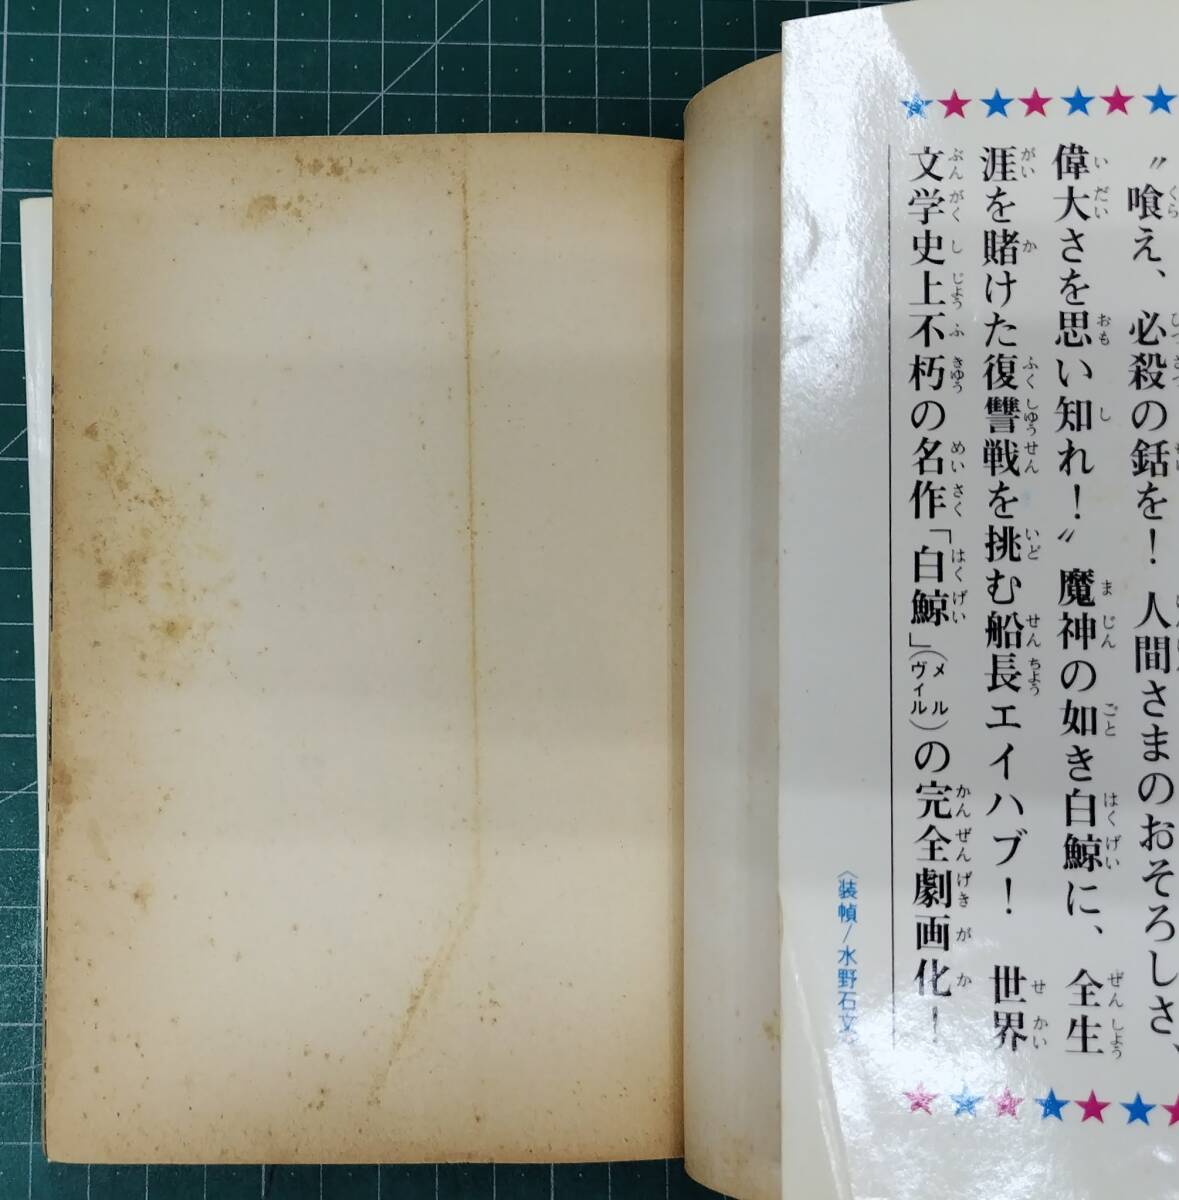 〝喰え、必殺の銛を！人間さまのおそろしさ、
偉大さを思い知れ！〟魔神の如き白鯨に、全生
涯を賭けた復讐戦を挑む船長エイハブ！ 世界
文学史上不朽の名作「白鯨」（メルヴィル）の完全劇画化！
〈装幀/水野石文〉